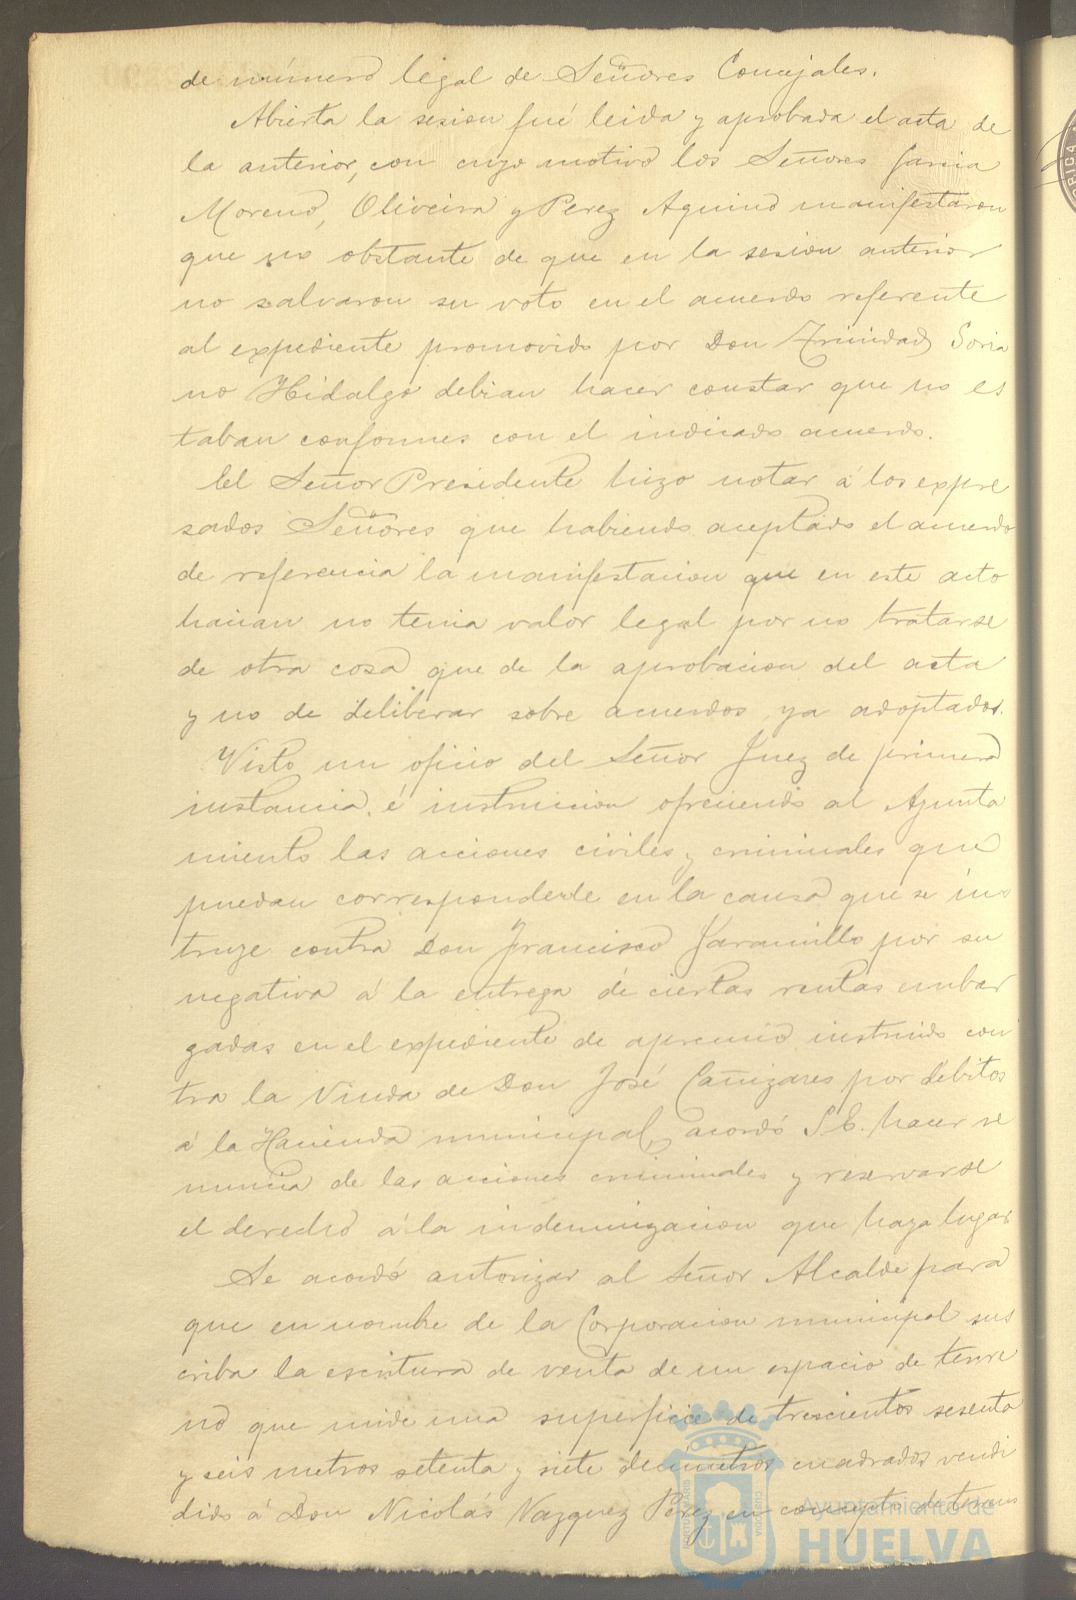 de número legal de Señores Concejales.
Abierta la sesion fué leida y aprobada el acta de
la anterior, con cuyo motivo los Señores Garcia
Moreno, Oliveira y Perez Aquino manifestaron
que no obstante de que en la sesion anterior
no salvaron su voto en el acuerdo referente
al expediente promovido por Don Trinidad Soria
no Hidalgo debian hacer constar que no es
taban conformes con el indicado acuerdo.
El Señor Presidente hizo notar á los expre
sados Señores que habiendo aceptado el acuerdo
de referencia la manifestacion que en este acto
hacian no tenia valor legal por no tratarse
de otra cosa que de la aprobacion del acta
y no de deliberar sobre acuerdos ya adoptados.
Visto un oficio del Señor Juez de primera
instancia é instruccion ofreciendo al Ayunta
miento las acciones civiles y criminales que
puedan corresponderle en la causa que se ins
truye contra Don Francisco Jaramillo por su
negativa á la entrega de ciertas rentas embar
gadas en el expediente de apremio instruido con
tra la Viuda de Don José Cañizares por débitos
á la Hacienda municipal, acordó S. E. hacer re
nuncia de las acciones criminales y reservarse
el derecho á la indemnizacion que haya lugar
Se acordó autorizar al Señor Alcalde para
que en nombre de la Corporacion municipal sus
criba la escritura de venta de un espacio de terre
no que mide una superficie de trescientos sesenta
y seis metros setenta y siete decímetros cuadrados vendi
dido á Don Nicolás Vazquez Pérez en concepto de
Ayuntamiento de
HUELVA